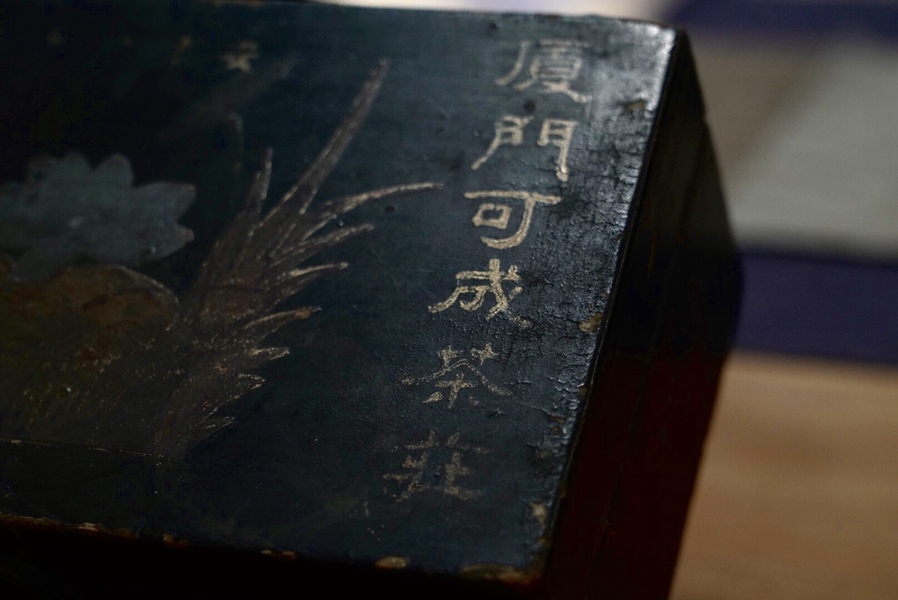 厦門可成茶莊